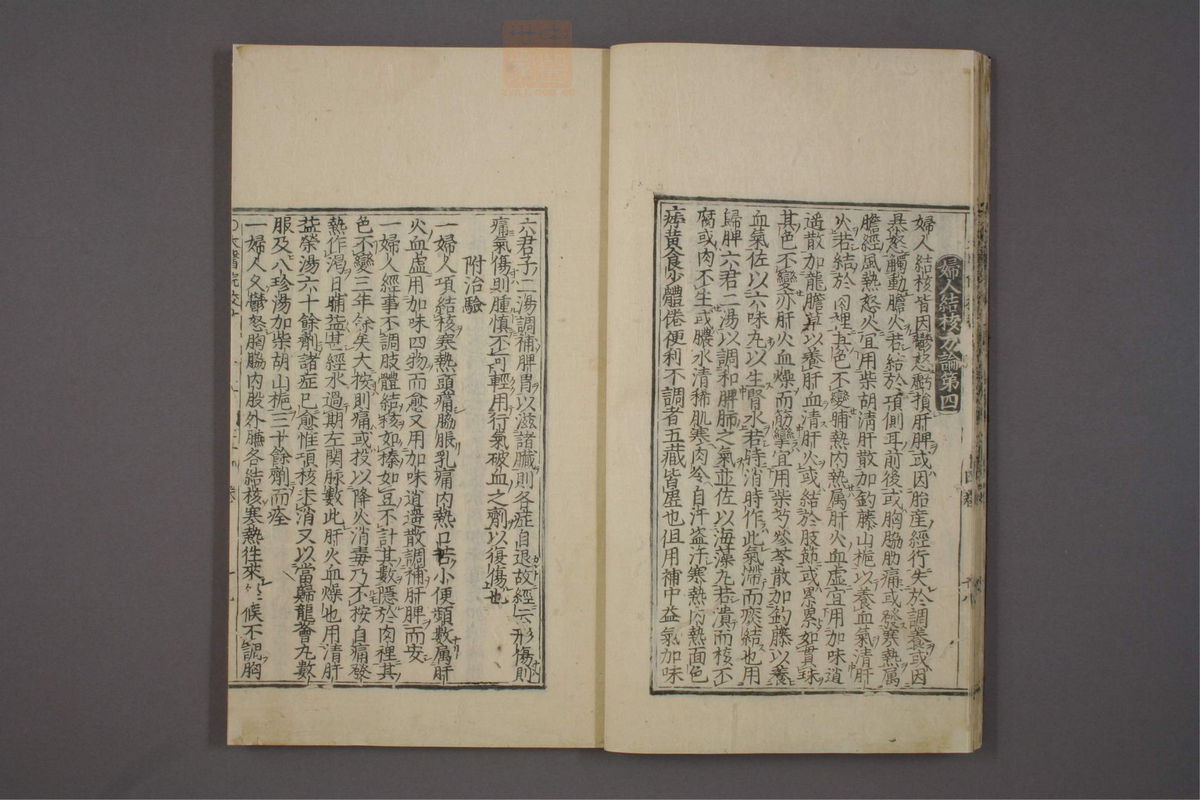 婦人結核方論第四
婦人結核皆因鬱怒虧損肝脾或因胎産經行失於調養或因
暴怒觸動膽火若結於項側耳前後或胸脇肋痛或發寒熱属
膽經風熱怒火宜用柴胡清肝散加釣藤山梔以養血氣清肝
火若結於肉理其色不變晡熱内熱属肝火血虚宜用加味逍
遥散加龍膽草以養肝血清肝火或結於肢節或累累如貫珠
其色不變亦肝火血燥而筋攣宜用柴芍參苓散加釣藤以養
血氣佐以六味丸以生腎水若時消時作此氣滯而痰結也用
歸脾六君二湯以調和脾肺之氣並佐以海藻丸若潰而核不
腐或肉不生或膿水清稀肌寒肉冷自汗盗汗寒熱内熱面色
痿黄食少體倦便利不調者五藏皆虚也但用補中益氣加味
六君子二湯調補脾胃以滋諸臓則各症自退故經云形傷則
痛氣傷則腫慎不可輕用行氣破血之劑以復傷也
附治驗
一婦人項結核寒熱頭痛脇脹乳痛内熱口苦小便頻數属肝
火血虚用加味四物而愈又用加味逍遥散調補肝脾而安
一婦人經事不調肢體結核如榛如豆不計其數隱於肉裡其
色不變三年餘矣大按則痛或投以降火消毒乃不按自痛發
熱作渇日晡益甚經水過期左関脉數此肝火血燥也用清肝
益榮湯六十餘劑諸症已愈惟項核未消又以當歸龍薈丸數
服及八珍湯加柴胡山梔三十餘劑而痊
一婦人久鬱怒胸脇内股外臁各結核寒熱徃來候不調胸